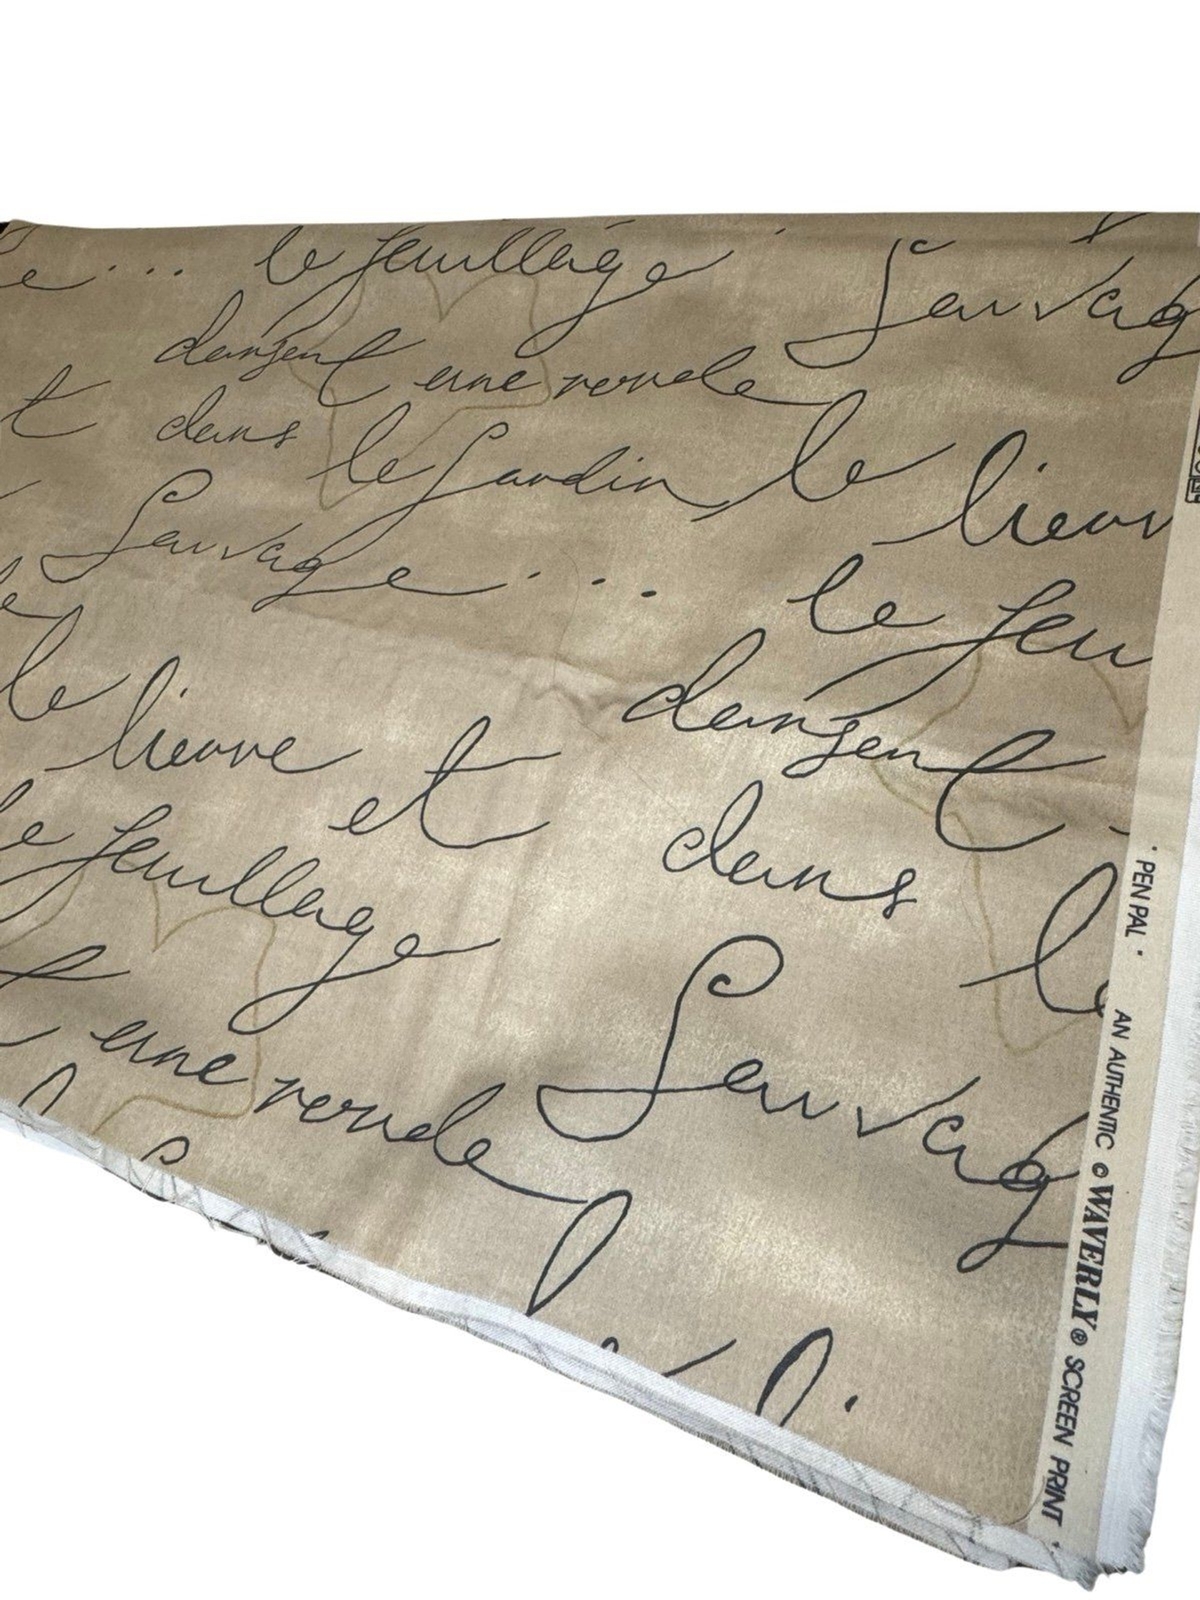 le feuillage Sauvag
dansent une ronde
dans le Jardin le lieuv
Sauvage... le feu
le lieuvre et dansent
le feuillage dans le
une ronde Sauvag
· PEN PAL · AN AUTHENTIC © WAVERLY® SCREEN PRINT ·